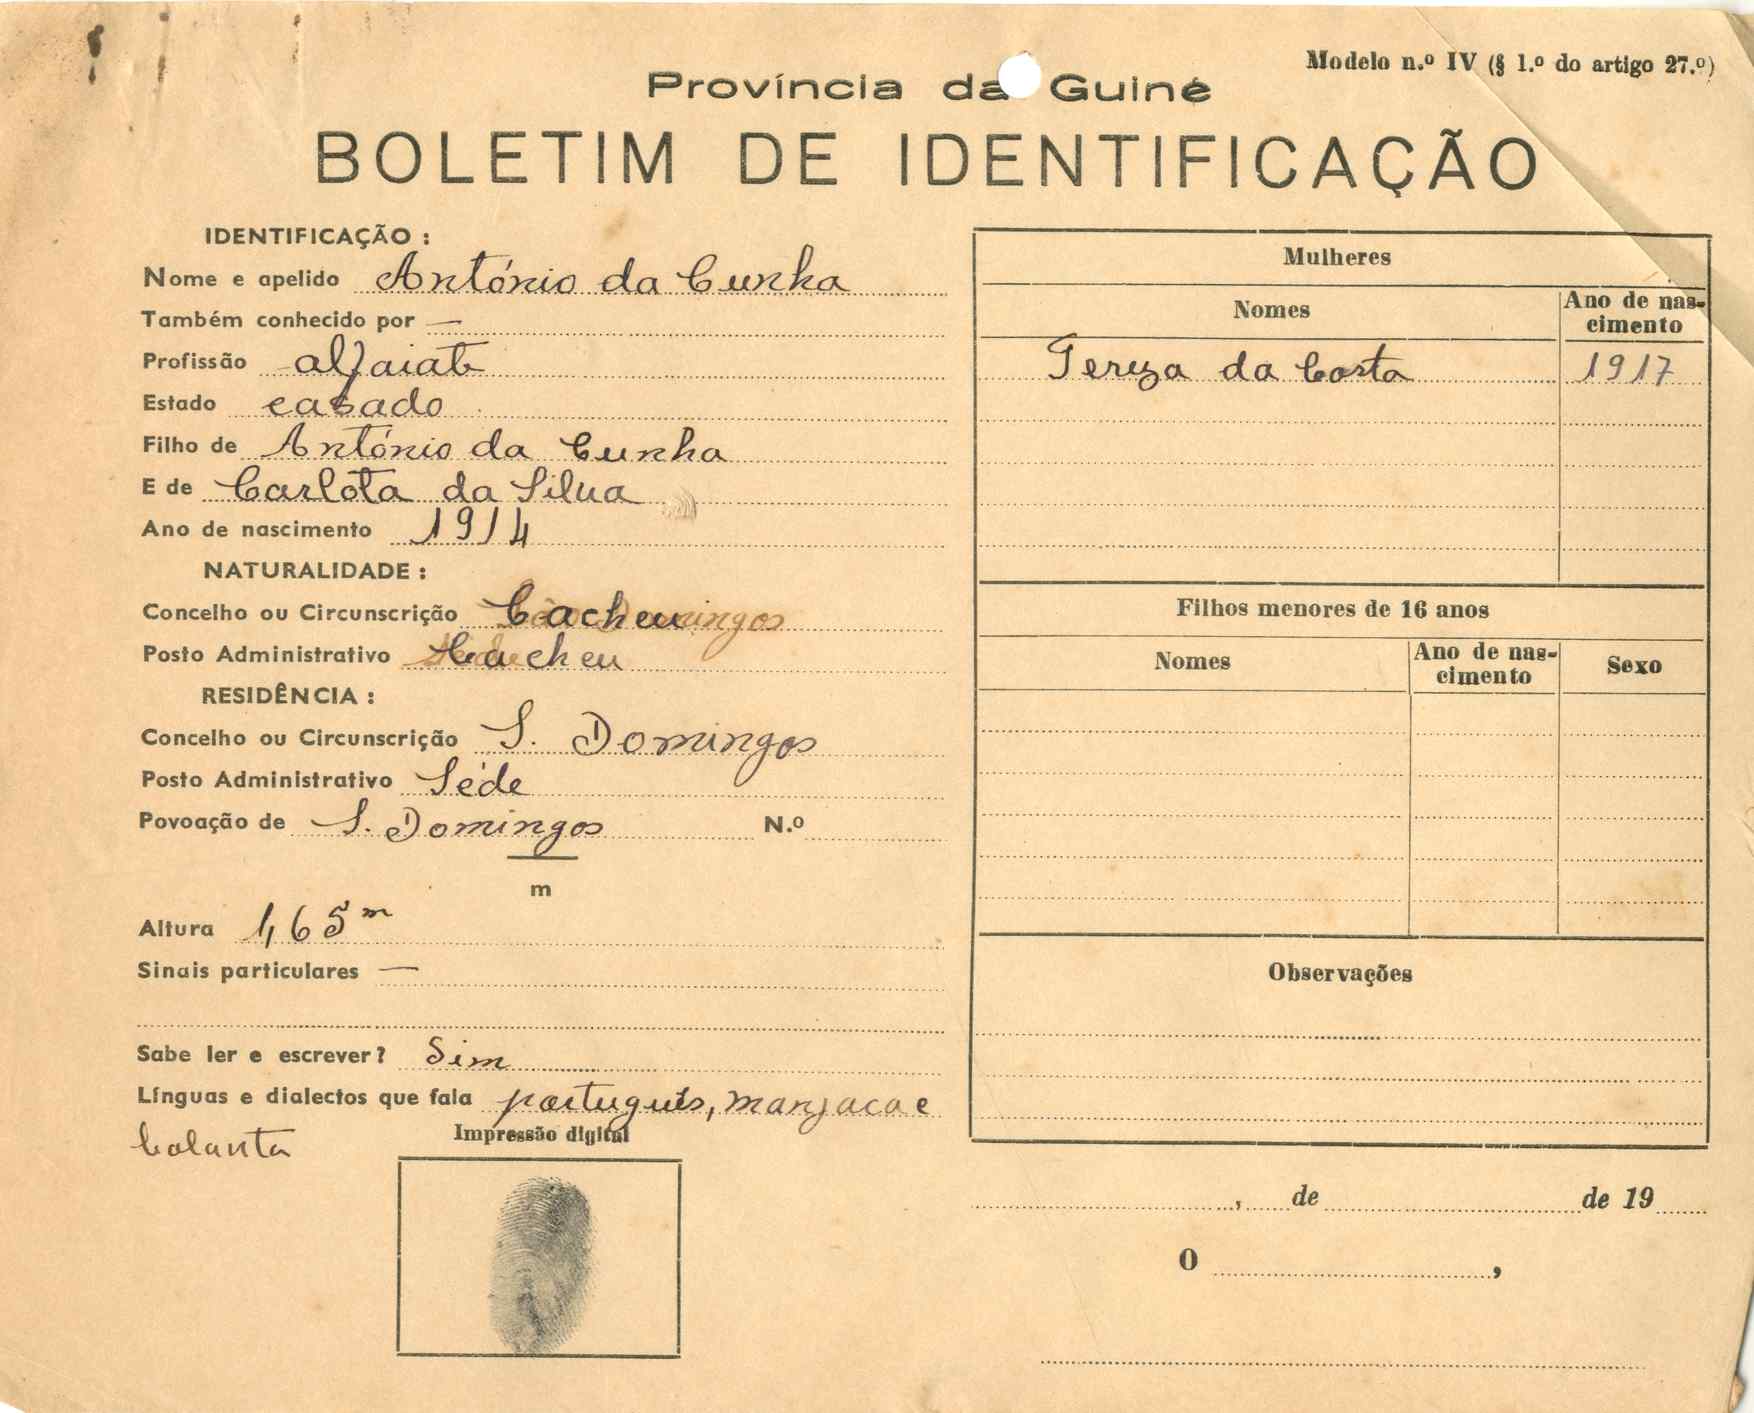 Modelo n.º IV (§ 1.º do artigo 27.º)
Província da Guiné
BOLETIM DE IDENTIFICAÇÃO
IDENTIFICAÇÃO :
Nome e apelido António da Cunha
Também conhecido por —
Profissão alfaiate
Estado casado
Filho de António da Cunha
E de Carlota da Silva
Ano de nascimento 1914
NATURALIDADE :
Concelho ou Circunscrição Cacheu
Posto Administrativo Cacheu
RESIDÊNCIA :
Concelho ou Circunscrição S. Domingos
Posto Administrativo Séde
Povoação de S. Domingos N.º
m
Altura 1,65 m
Sinais particulares —
Sabe ler e escrever? Sim
Línguas e dialectos que fala português, manjaca e
balanta
Impressão digital
Mulheres
Nomes Ano de nas-
cimento
Tereza da Costa 1917
Filhos menores de 16 anos
Nomes Ano de nas-
cimento Sexo
Observações
, de de 19
O ,